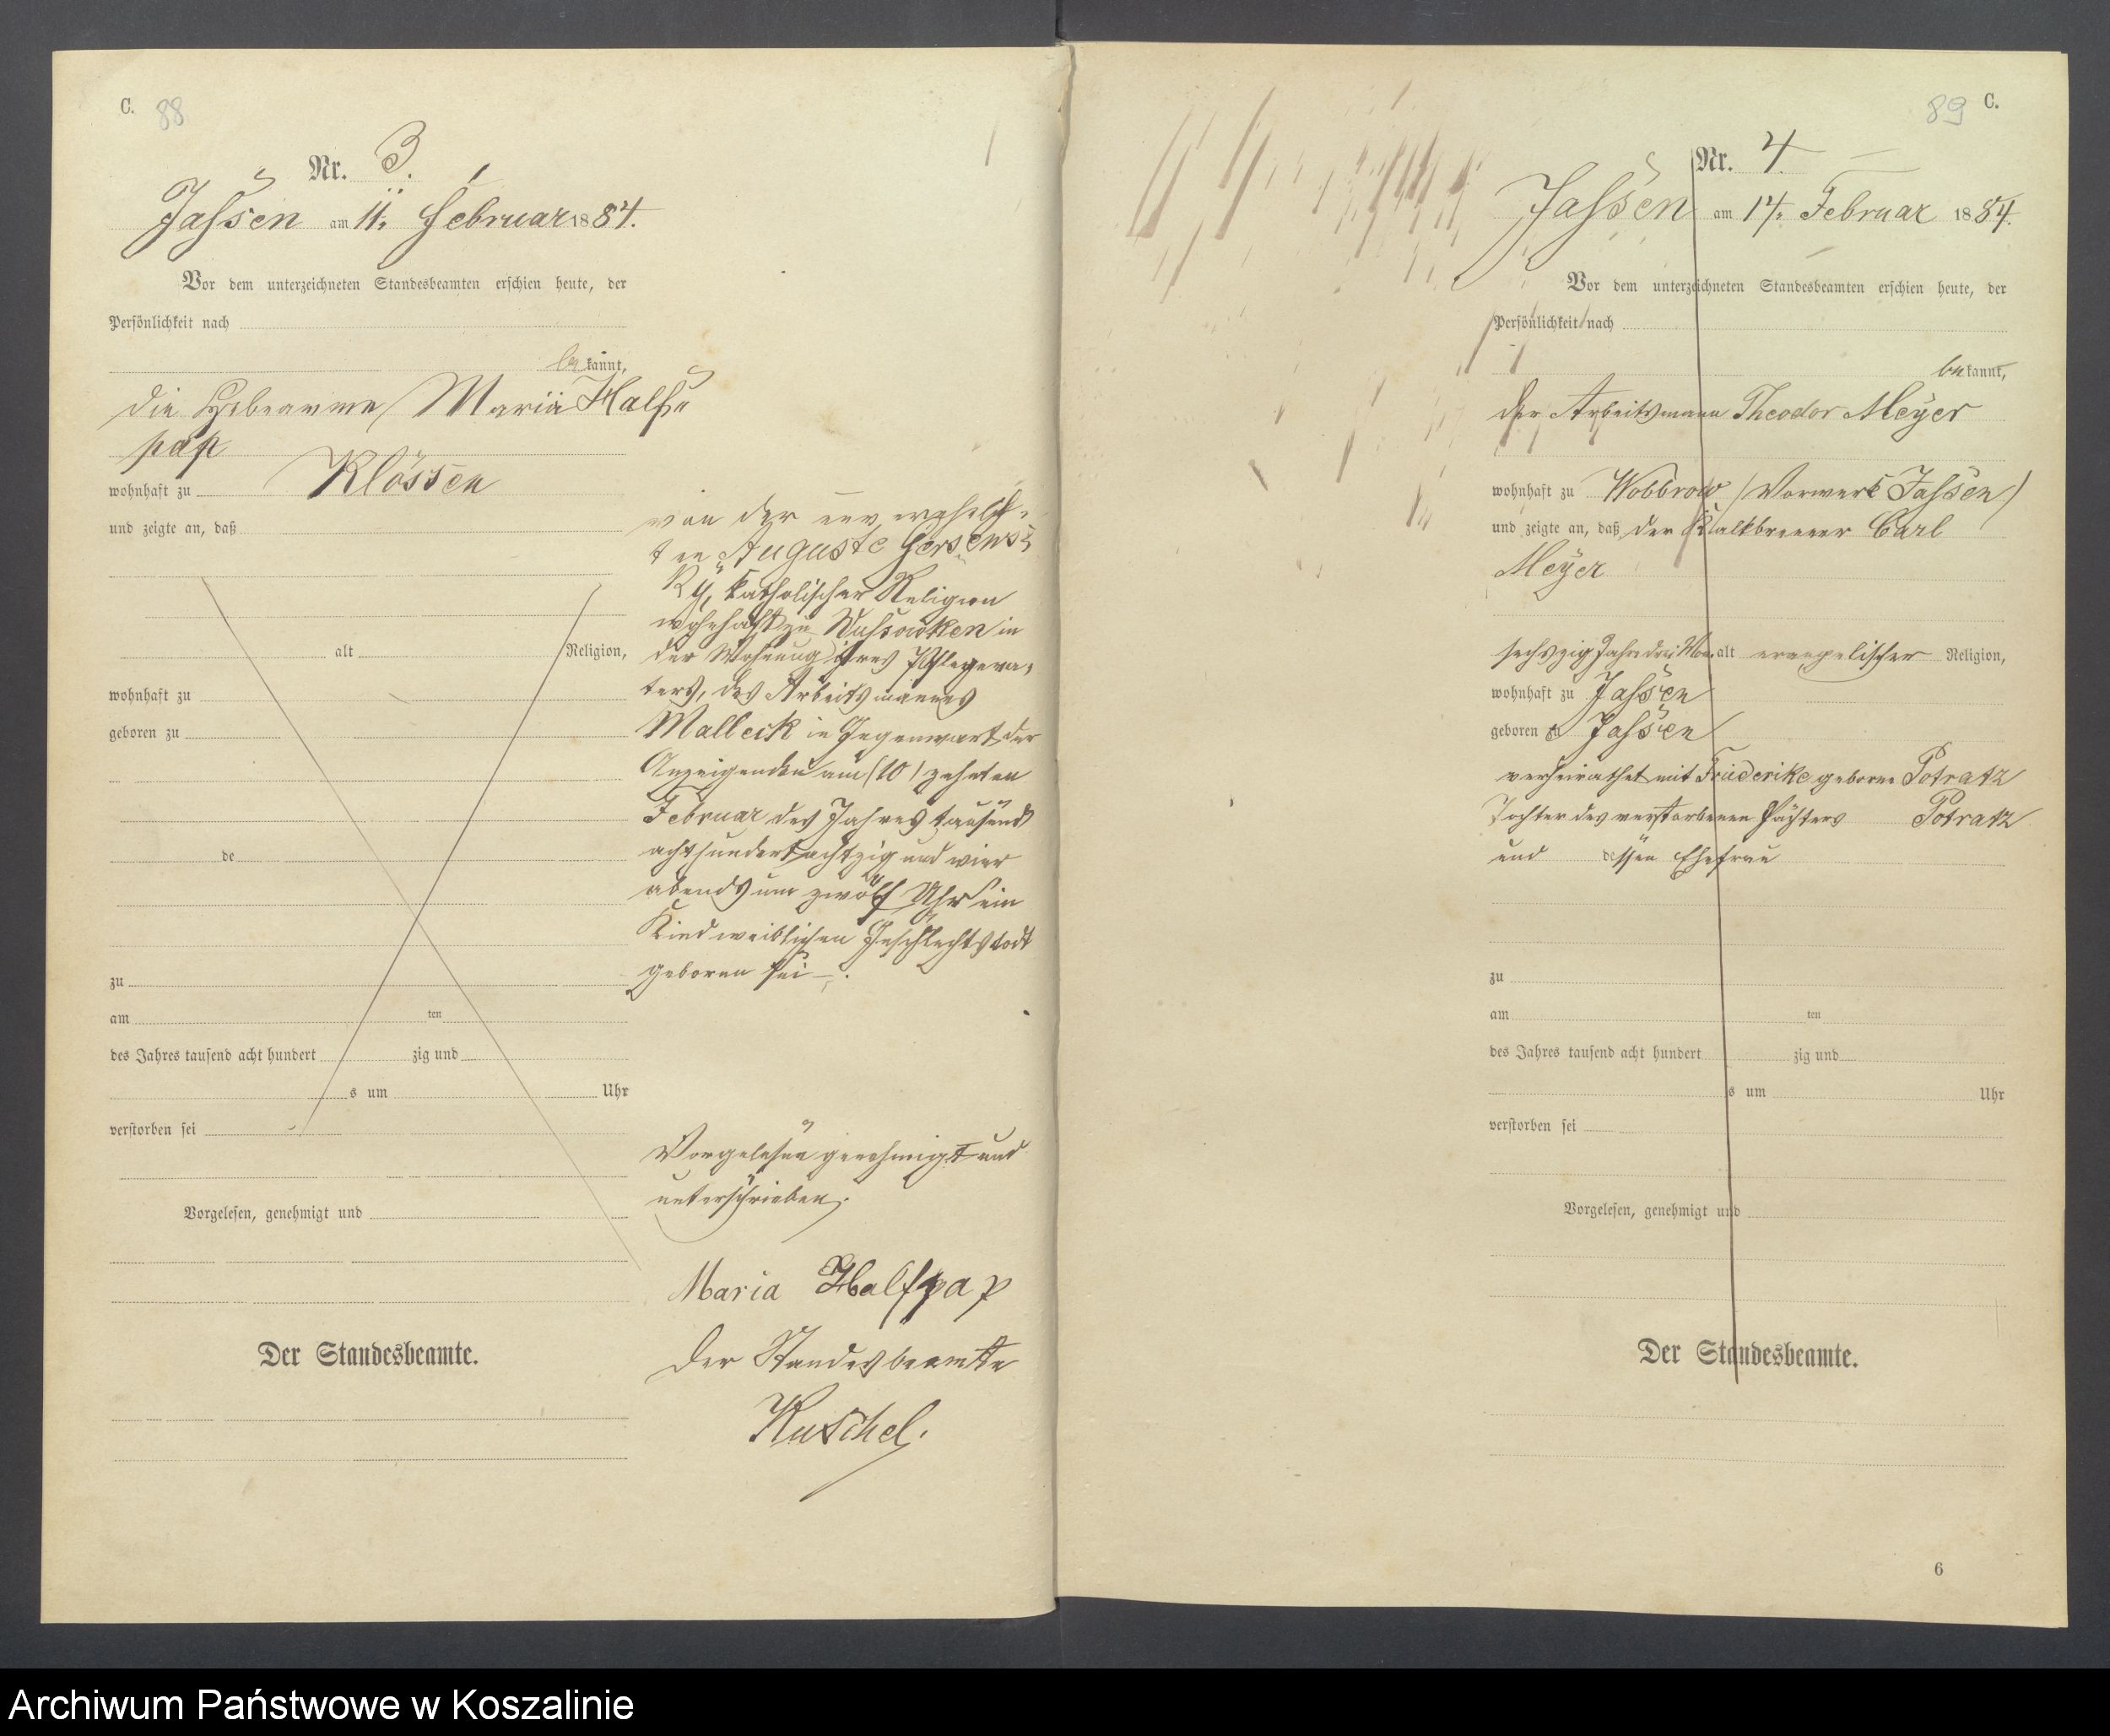 C. 88
Nr. 3.
Jassen am 11. Februar 1884.
Vor dem unterzeichneten Standesbeamten erschien heute, der
Persönlichkeit nach
be kannt,
die Hebeamme Maria Half„
pap
wohnhaft zu Klössen
und zeigte an, daß
alt Religion,
wohnhaft zu
geboren zu
de
zu
am ten
des Jahres tausend acht hundert zig und
s um Uhr
verstorben sei
Vorgelesen, genehmigt und
Der Standesbeamte.
von der unverehelich-
ten Auguste
ky, katholischer Religion
wohnhaft zu Wussowken in
der Wohnung ihres Pflegeva-
ters, des Arbeitsmannes
Malleck in Gegenwart der
Anzeigenden am (10) zehnten
Februar des Jahres tausend
achthundert achtzig und vier
abends um zwölf Uhr ein
Kind weiblichen Geschlechts todt
geboren sei –.
Vorgelesen genehmigt und
unterschrieben.
Maria Halfpap
Der Standesbeamte
Kuschel.
89 C.
Nr. 4.
Jassen am 14. Februar 1884.
Vor dem unterzeichneten Standesbeamten erschien heute, der
Persönlichkeit nach
be kannt,
der Arbeitsmann Theodor Meyer
wohnhaft zu Wobbrow (Vorwerk Jassen)
und zeigte an, daß der Kalkbrenner Carl
Meyer
sechszig Jahre drei Mon. alt evangelischer Religion,
wohnhaft zu Jassen
geboren zu Jassen
verheirathet mit Friederike geborne Potratz
Tochter des verstorbenen Pächters Potratz
und dessen Ehefrau
zu
am ten
des Jahres tausend acht hundert zig und
s um Uhr
verstorben sei
Vorgelesen, genehmigt und
Der Standesbeamte.
6
Archiwum Państwowe w Koszalinie